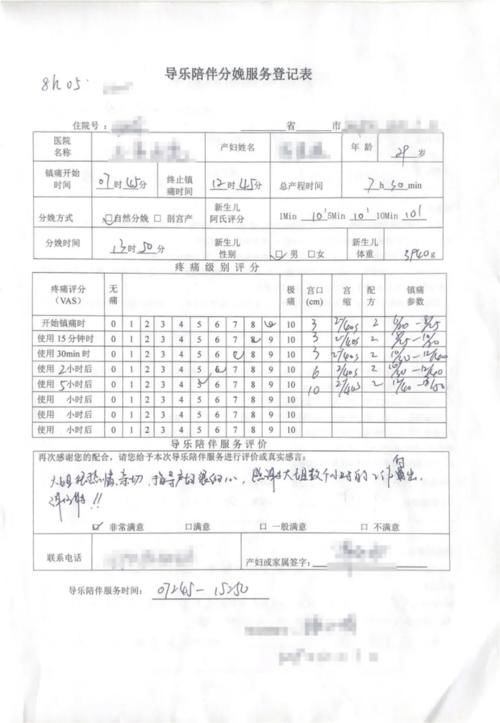 8h05
导乐陪伴分娩服务登记表
住院号: 省 市
医院名称 产妇姓名 年龄 29岁
镇痛开始时间 07时45分 终止镇痛时间 12时45分 总产程时间 7h30min
分娩方式 ☑自然分娩 □剖宫产 新生儿阿氏评分 1Min 10' 5Min 10' 10Min 10'
分娩时间 13时50分 新生儿性别 ☑男 □女 新生儿体重 3940g
疼痛级别评分
疼痛评分(VAS) 无痛 极痛 宫口(cm) 宫缩 配方 镇痛参数
开始镇痛时 0 1 2 3 4 5 6 7 8 9 10 3 2'/40s 2
使用15分钟时 0 1 2 3 4 5 6 7 8 9 10 3 2'/40s 2
使用30min时 0 1 2 3 4 5 6 7 8 9 10 3 2'/40s 2
使用2小时后 0 1 2 3 4 5 6 7 8 9 10 6 2'/40s 2
使用5小时后 0 1 2 3 4 5 6 7 8 9 10 10 2'/40s 2
使用 小时后 0 1 2 3 4 5 6 7 8 9 10
使用 小时后 0 1 2 3 4 5 6 7 8 9 10
导乐陪伴服务评价
再次感谢您的配合，请您给予本次导乐陪伴服务进行评价或真实感言:
大姐很热情,亲切,指导产妇很细心,感谢大姐数个小时的工作付出,
谢谢!!
☑非常满意 □满意 □一般满意 □不满意
联系电话 产妇或家属签字:
导乐陪伴服务时间: 07:45-15:50